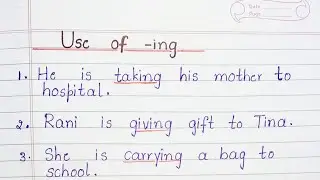 Use of -ing
1. He is taking his mother to
hospital.
2. Rani is giving gift to Tina.
3. She is carrying a bag to
school.